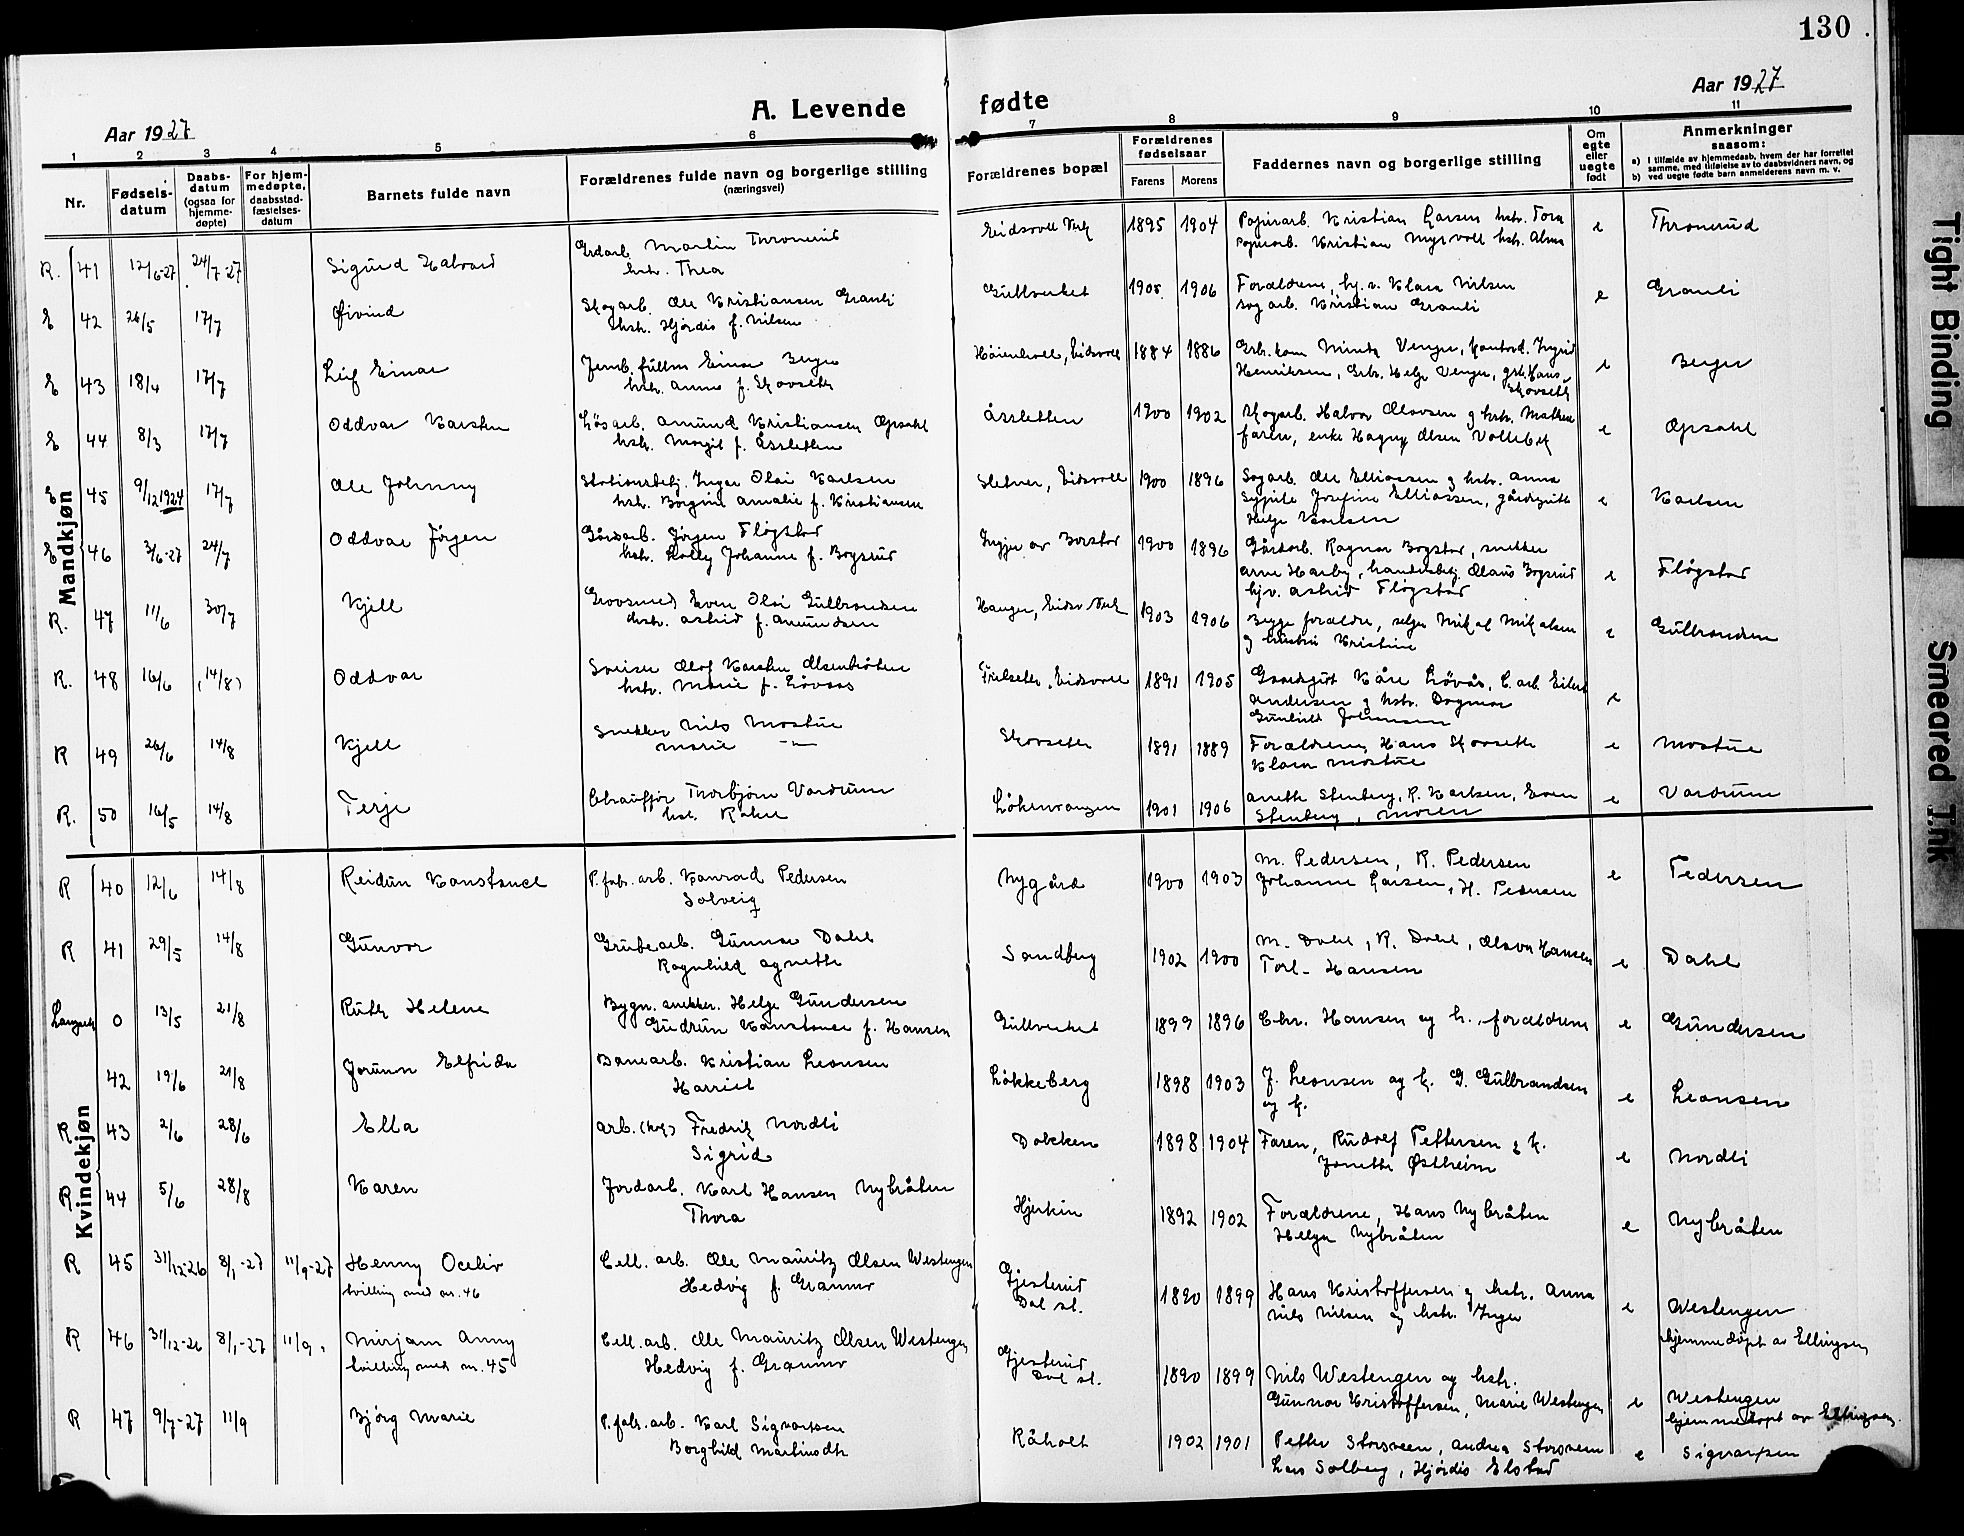 130
Aar 1927
A. Levende
fødte
Aar 1927
1 2 3 4 5 6 7 8 9 10 11
Nr.
Fødsels-
datum
Daabs-
datum
(ogsaa for
hjemme-
døpte)
For hjem-
medøpte,
daabsstad-
fæstelses-
datum
Barnets fulde navn
Forældrenes fulde navn og borgerlige stilling
(næringsvei)
Forældrenes bopæl
Forældrenes
fødselsaar
Farens Morens
Faddernes navn og borgerlige stilling
Om
egte
eller
uegte
født
Anmerkninger
saasom:
a) I tilfælde av hjemmedaab, hvem der har forrettet
samme, med tilføielse av to daabsvidners navn, og
b) ved uegte fødte barn anmelderens navn m. v.
Mandkjøn
R. 41 12/6-27 24/7-27 Sigurd Halvard
Martin Thronerud
hstr. Thea
Eidsvoll Verk 1895 1904
Papirarb. Kristian Larsen hstr. Tora
Papirarb. Kristian Myrvoll hstr. Alma
e Thronerud
E 42 26/5 17/7 Øivind
Skogarb. Ole Kristiansen Granli
hstr. Hjørdis f. Nilsen
Gullverket 1905 1906
Forældrene, hj.v. Klara Nilsen
sagarb. Kristian Granli
e Granli
E 43 18/4 17/7 Leif Einar
Jernb. fullm Einar Berger
hstr. Anna f. Skovseth
Eidsvoll 1884 1886
Venger, Kontord. Ingrid
Henriksen, Helge Venger, Hans
Skovseth
e Berger
E 44 8/3 17/7 Oddvar Karsten
Løsarb. Amund Kristiansen Opsahl
hstr. Margit f. Åssletten
Åssletten 1900 1902
Skogarb. Halvor Olavsen og hstr. Mathea
faren, enke Olsen
e Opsahl
E 45 9/12 1924 17/7 Ole Johnny
Stationsbetj. Olai Karlsen
hstr. Borgine Amalie f. Kristiansen
Sletner, Eidsvoll 1900 1896
Sagarb. Ole Elliassen og hstr. Anna
Sypike Josefine Elliassen, gårdsgutt
Helge Karlsen
e Karlsen
E 46 3/6-27 24/7 Oddvar Jørgen
Gårdarb. Jørgen Fløgstad
hstr. Johanne f. Bogsrud
1900 1896
Gårdarb. Ragnar snekker
Arne Harby, handelsbetj. Olaus Bogsrud
hjv. Astrid Fløgstad
e Fløgstad
R. 47 11/6 30/7 Kjell
Grovsmed Even Olai Gulbrandsen
hstr. Astrid f. Amundsen
Eidsv. Verk 1903 1906
Begge forældre, selger Mikal Mikalsen
og hustru Kristine
e Gulbrandsen
R. 48 16/6 (14/8) Oddvar
Sveiser Olaf Karsten
hstr. Marie f. Løvaas
Eidsvoll 1891 1905
Gaardsgut Kåre Løvås, Eilert
Andersen og hstr. Dagmar
Gunhild Johansen
e
R 49 26/6 14/8 Kjell
Snekker Nils Mostue
Marie -"-
Skovseter 1891 1889
Forældrene, Hans Skovseth
Klara Mostue
e Mostue
R. 50 16/5 14/8 Terje
Chauffør Thorbjørn Vardrum
hst. Rakel
1901 1906
Anette Stenberg, R. Karlsen, Even
Stenberg, moren
e Vardrum
Kvindekjøn
R 40 12/6 14/8 Reidun Konstance
P.fabr.arb. Konrad Pedersen
Solveig
Nygård 1900 1903
M. Pedersen, R. Pedersen
Johanne Larsen, H. Pedersen
e Pedersen
R 41 29/5 14/8 Gunvor
Grubearb. Gunnar Dahl
Ragnhild Agnethe
Sandberg 1902 1900
M. Dahl, R. Dahl, Hansen
Hansen
e Dahl
0 13/5 21/8 Ruth Helene
Bygn. snekker. Helge Gundersen
Gudrun Konstance f. Hansen
Gullverket 1899 1896
Chr. Hansen og h., forældrene
e Gundersen
42 19/6 21/8 Jorunn Elfrida
Banearb. Kristian Leonsen
Harriet
Løkkeberg 1898 1903
J. Leonsen og h. G. Gulbrandsen
og h.
e Leonsen
R 43 2/6 28/6 Ella
arb. Fredrik Nordli
Sigrid
Dokken 1898 1904
Faren, Rudolf Pettersen og h.
Janette Østheim
e Nordli
R 44 5/6 28/8 Karen
Jordarb. Karl Hansen Nybråten
Thora
Hjerkin 1892 1902
Forældrene, Hans Nybråten
Helga Nybråten
e Nybråten
R 45 31/12-26 8/1-27 11/9-27 Henny
tvilling med nr. 46
Cell. arb. Ole Mauritz Olsen Westengen
Hedvig f. Granmo
Gjesterud
Dal st.
1890 1899
Hans Kristoffersen og hstr. Anna
Nils Nilsen og hstr. Inger
e Westengen
hjemmedøpt av Ellingsen
R 46 31/12-26 8/1-27 11/9 Mirjam Anny
tvilling med nr. 45
Cell. arb. Ole Mauritz Olsen Westengen
Hedvig f. Granmo
Gjesterud
Dal st.
1890 1899
Nils Westengen og hstr.
Gunnar Kristoffersen, Marie Westengen
e Westengen
hjemmedøpt av Ellingsen
R 47 9/7-27 11/9 Bjørg Marie
P.fabr.arb. Karl Sigvartsen
Borghild
Råholt 1902 1901
Petter Storsveen, Andrea Storsveen
Lars Solberg, Hjørdis Elstad
e Sigvartsen
Tight Binding
Smeared Ink